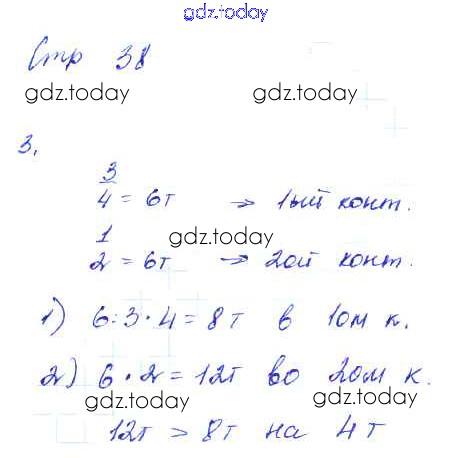 gdz.today
Стр 38
gdz.today gdz.today
3.
3/4 = 6т → 1ый конт.
gdz.today
1/2 = 6т → 2ой конт.
1) 6:3·4=8т в 1ом к.
2) 6·2=12т во 2ом к.
gdz.today gdz.today
12т > 8т на 4т